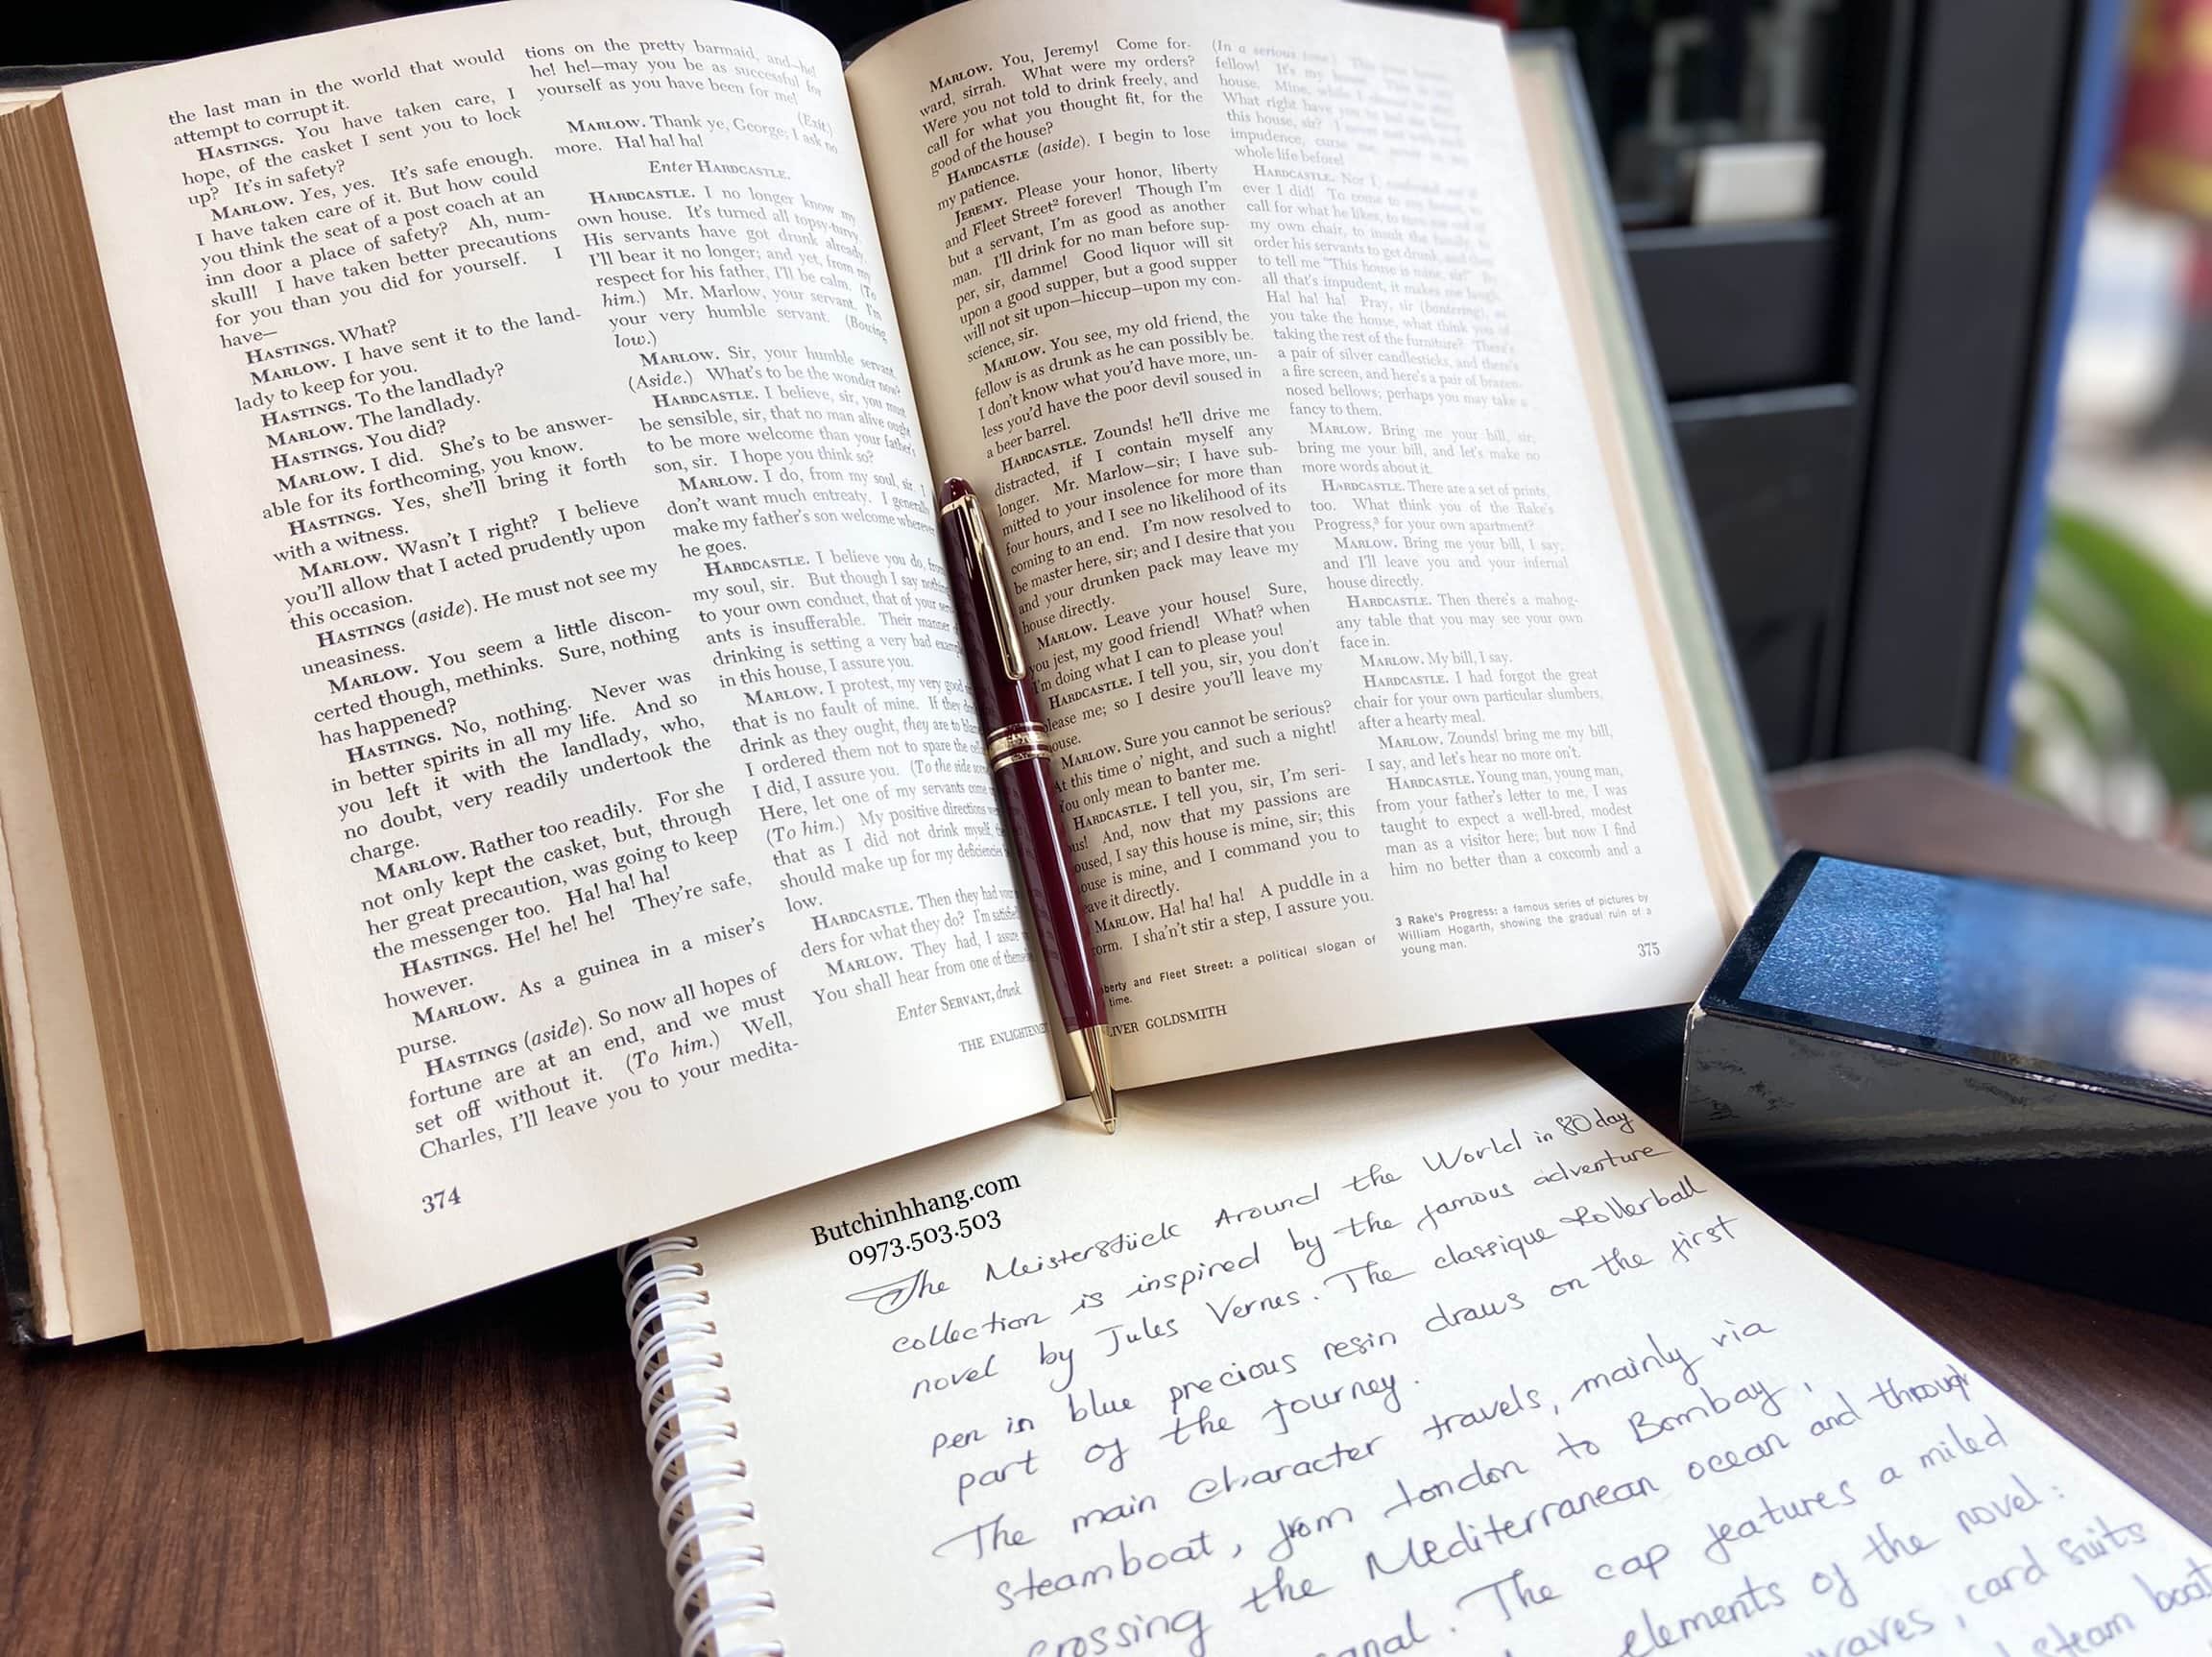 the last man in the world that would
attempt to corrupt it.
HASTINGS. You have taken care, I
hope, of the casket I sent you to lock
up? It's in safety?
MARLOW. Yes, yes. It's safe enough.
I have taken care of it. But how could
you think the seat of a post coach at an
inn door a place of safety? Ah, num-
skull! I have taken better precautions
for you than you did for yourself. I
have—
HASTINGS. What?
MARLOW. I have sent it to the land-
lady to keep for you.
HASTINGS. To the landlady?
MARLOW. The landlady.
HASTINGS. You did?
MARLOW. I did. She's to be answer-
able for its forthcoming, you know.
HASTINGS. Yes, she'll bring it forth
with a witness.
MARLOW. Wasn't I right? I believe
you'll allow that I acted prudently upon
this occasion.
HASTINGS (aside). He must not see my
uneasiness.
MARLOW. You seem a little discon-
certed though, methinks. Sure, nothing
has happened?
HASTINGS. No, nothing. Never was
in better spirits in all my life. And so
you left it with the landlady, who,
no doubt, very readily undertook the
charge.
MARLOW. Rather too readily. For she
not only kept the casket, but, through
her great precaution, was going to keep
the messenger too. Ha! ha! ha!
HASTINGS. He! he! he! They're safe,
however.
MARLOW. As a guinea in a miser's
purse.
HASTINGS (aside). So now all hopes of
fortune are at an end, and we must
set off without it. (To him.) Well,
Charles, I'll leave you to your medita-
374
tions on the pretty barmaid, and—he!
he! he!—may you be as successful for
yourself as you have been for me!
(Exit.)
MARLOW. Thank ye, George; I ask no
more. Ha! ha! ha!
Enter HARDCASTLE.
HARDCASTLE. I no longer know my
own house. It's turned all topsy-turvy.
His servants have got drunk already.
I'll bear it no longer; and yet, from my
respect for his father, I'll be calm. (To
him.) Mr. Marlow, your servant. I'm
your very humble servant. (Bowing
low.)
MARLOW. Sir, your humble servant.
(Aside.) What's to be the wonder now?
HARDCASTLE. I believe, sir, you must
be sensible, sir, that no man alive ought
to be more welcome than your father's
son, sir. I hope you think so?
MARLOW. I do, from my soul, sir. I
don't want much entreaty. I generally
make my father's son welcome wherever
he goes.
HARDCASTLE. I believe you do, from
my soul, sir. But though I say nothing
to your own conduct, that of your serv-
ants is insufferable. Their manner of
drinking is setting a very bad example
in this house, I assure you.
MARLOW. I protest, my very good
that is no fault of mine. If they
drink as they ought, they are to
I ordered them not to spare the
I did, I assure you. (To the side
Here, let one of my servants come
(To him.) My positive directions
that as I did not drink myself,
should make up for my deficiencies
low.
HARDCASTLE. Then they had your
ders for what they do? I'm satisfied
MARLOW. They had, I assure
You shall hear from one of
Enter SERVANT, drunk
THE ENLIGHTENMENT
MARLOW. You, Jeremy! Come for-
ward, sirrah. What were my orders?
Were you not told to drink freely, and
call for what you thought fit, for the
good of the house?
HARDCASTLE (aside). I begin to lose
my patience.
JEREMY. Please your honor, liberty
and Fleet Street² forever! Though I'm
but a servant, I'm as good as another
man. I'll drink for no man before sup-
per, sir, damme! Good liquor will sit
upon a good supper, but a good supper
will not sit upon—hiccup—upon my con-
science, sir.
MARLOW. You see, my old friend, the
fellow is as drunk as he can possibly be.
I don't know what you'd have more, un-
less you'd have the poor devil soused in
a beer barrel.
HARDCASTLE. Zounds! he'll drive me
distracted, if I contain myself any
longer. Mr. Marlow—sir; I have sub-
mitted to your insolence for more than
four hours, and I see no likelihood of its
coming to an end. I'm now resolved to
be master here, sir; and I desire that you
and your drunken pack may leave my
house directly.
MARLOW. Leave your house! Sure,
you jest, my good friend! What? when
I'm doing what I can to please you!
HARDCASTLE. I tell you, sir, you don't
please me; so I desire you'll leave my
house.
MARLOW. Sure you cannot be serious?
At this time o' night, and such a night!
You only mean to banter me.
HARDCASTLE. I tell you, sir, I'm seri-
ous! And, now that my passions are
roused, I say this house is mine, sir; this
house is mine, and I command you to
leave it directly.
MARLOW. Ha! ha! ha! A puddle in a
storm. I sha'n't stir a step, I assure you.
berty and Fleet Street: a political slogan of
time.
LIVER GOLDSMITH
(In a serious tone)
fellow! It's my house.
house. Mine,
What right have you to
this house, sir? I never
impudence, curse me, never in my
whole life before!
HARDCASTLE. Nor I,
ever I did! To come to my house, to
call for what he likes, to turn me out of
my own chair, to insult the family, to
order his servants to get drunk, and then
to tell me "This house is mine, sir!" By
all that's impudent, it makes me laugh.
Ha! ha! ha! Pray, sir (bantering), as
you take the house, what think you of
taking the rest of the furniture? There's
a pair of silver candlesticks, and there's
a fire screen, and here's a pair of brazen-
nosed bellows; perhaps you may take a
fancy to them.
MARLOW. Bring me your bill, sir;
bring me your bill, and let's make no
more words about it.
HARDCASTLE. There are a set of prints,
too. What think you of the Rake's
Progress,³ for your own apartment?
MARLOW. Bring me your bill, I say;
and I'll leave you and your infernal
house directly.
HARDCASTLE. Then there's a mahog-
any table that you may see your own
face in.
MARLOW. My bill, I say.
HARDCASTLE. I had forgot the great
chair for your own particular slumbers,
after a hearty meal.
MARLOW. Zounds! bring me my bill,
I say, and let's hear no more on't.
HARDCASTLE. Young man, young man,
from your father's letter to me, I was
taught to expect a well-bred, modest
man as a visitor here; but now I find
him no better than a coxcomb and a
3 Rake's Progress: a famous series of pictures by
William Hogarth, showing the gradual ruin of a
young man.
375
Butchinhhang.com
0973.503.503
The Meisterstück Around the World in 80 day
collection is inspired by the famous adventure
novel by Jules Vernes. The classique Rollerball
pen in blue precious resin draws on the first
part of the journey.
The main character travels, mainly via
steamboat, from London to Bombay,
crossing the Mediterranean ocean and through
anal. The cap features a miled
elements of the novel:
waves, card suits
steam boat